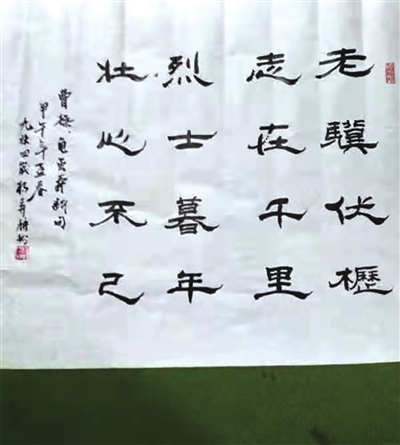 老驥伏櫪
志在千里
烈士暮年
壮心不已
曹操龟虽寿断句
甲午年孟春
九秩四岁